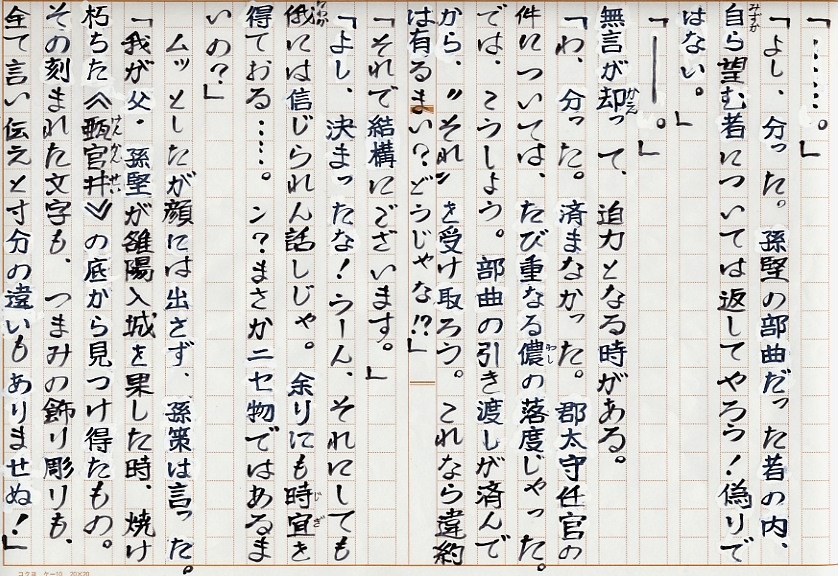 「……。」
「よし、分った。孫堅の部曲だった者の内、
自ら望む者については返してやろう！偽りで
はない。」
「――。」
無言が却って、迫力となる時がある。
「わ、分った。済まなかった。郡太守任官の
件については、たび重なる儂の落度じゃった。
では、こうしよう。部曲の引き渡しが済んで
から、〝それ〟を受け取ろう。これなら違約
は有るまい？どうじゃな!?」
「それで結構にございます。」
「よし、決まったな！うーん、それにしても
俄には信じられん話しじゃ。余りにも時宜を
得ておる……。ン？まさかニセ物ではあるま
いの？」
ムッとしたが顔には出さず、孫策は言った。
「我が父・孫堅が雒陽入城を果した時、焼け
朽ちた《甄官井》の底から見つけ得たもの。
その刻まれた文字も、つまみの飾り彫りも、
全て言い伝えと寸分の違いもありませぬ！」
コクヨ ケー10 20×20